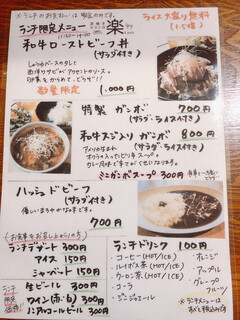 ランチ限定メニュー
楽
ライス大盛り無料
(1.5倍)
和牛ローストビーフ丼
(サラダ付き)
しょうゆバースのタレと
西洋ワサビがアクセントのソース。
数量限定
1,000円
特製 ガンボ 700円
(サラダ・ライス付き)
和牛スジ入りガンボ 800円
(サラダ・ライス付き)
アメリカ生まれ
オクラ入りのスパイシースープ。
ミニガンボスープ 300円
ハッシュドビーフ
(サラダ付き)
優しいまろやかなお味です。
700円
(お食事をお召し上がりの方)
ランチデザート 300円
アイス 150円
シャーベット 150円
生ビール 300円
ワイン(赤・白) 300円
ノンアルコールビール 300円
ランチドリンク 100円
・コーヒー(HOT/ICE)
・ルイボス茶(HOT/ICE)
・ウーロン茶(HOT/ICE)
・コーラ
・ジンジャーエール
・オレンジ
・アップル
・グレープフルーツ
※ランチメニューは
全て税込みです。